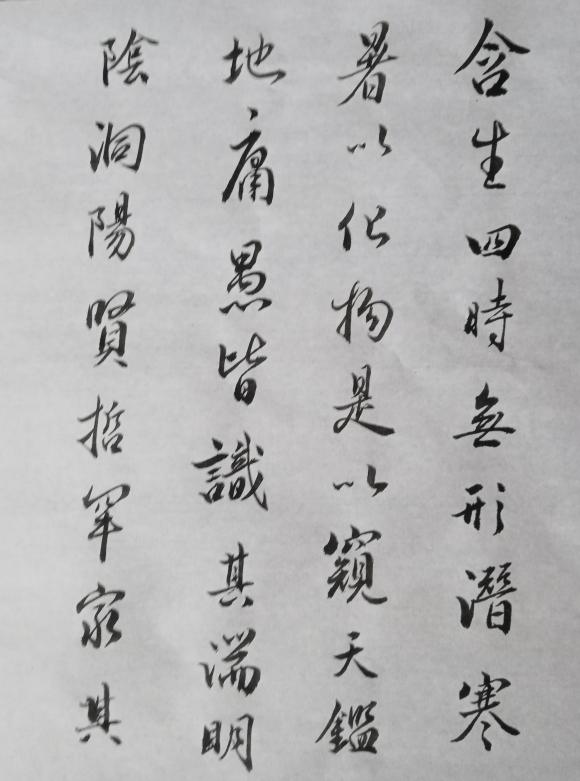 含生四時無形潛寒
暑以化物是以窺天鑑
地庸愚皆識其端明
陰洞陽賢哲罕窮其